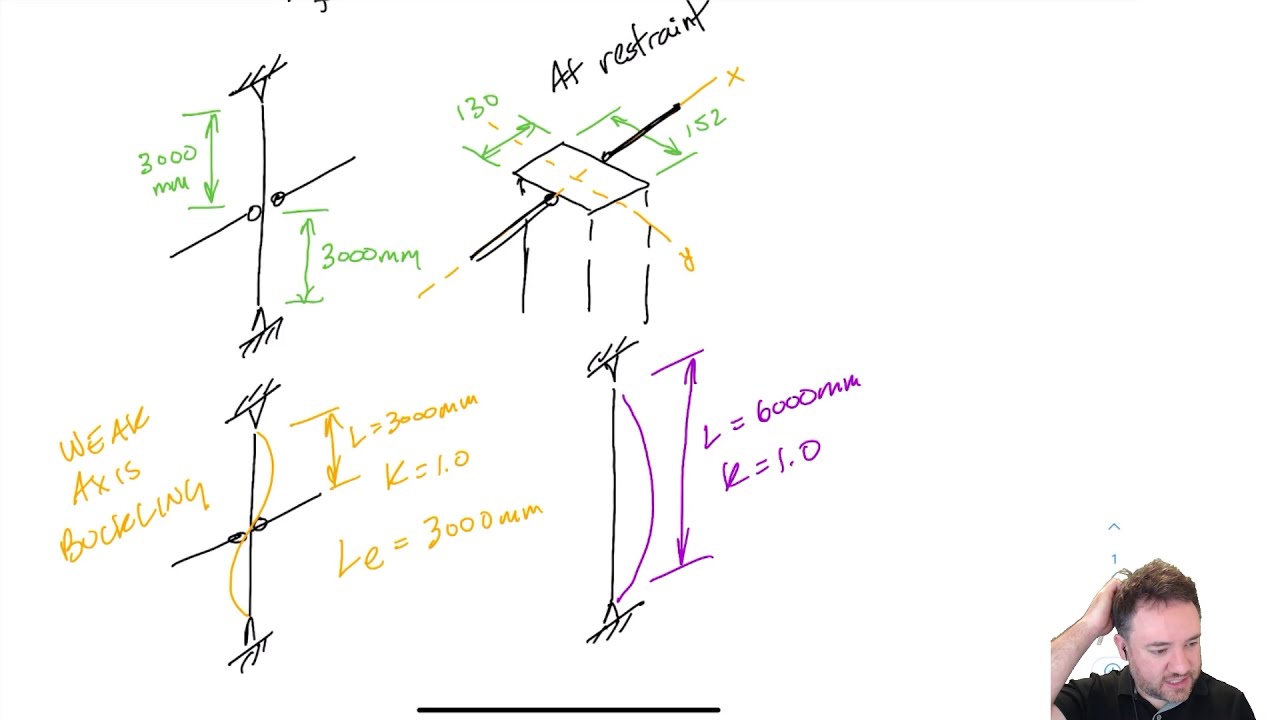 At restraint
130
152
x
y
3000
mm
3000mm
WEAK
AXIS
BUCKLING
L=3000mm
K=1.0
Le = 3000mm
L = 6000mm
K=1.0
1